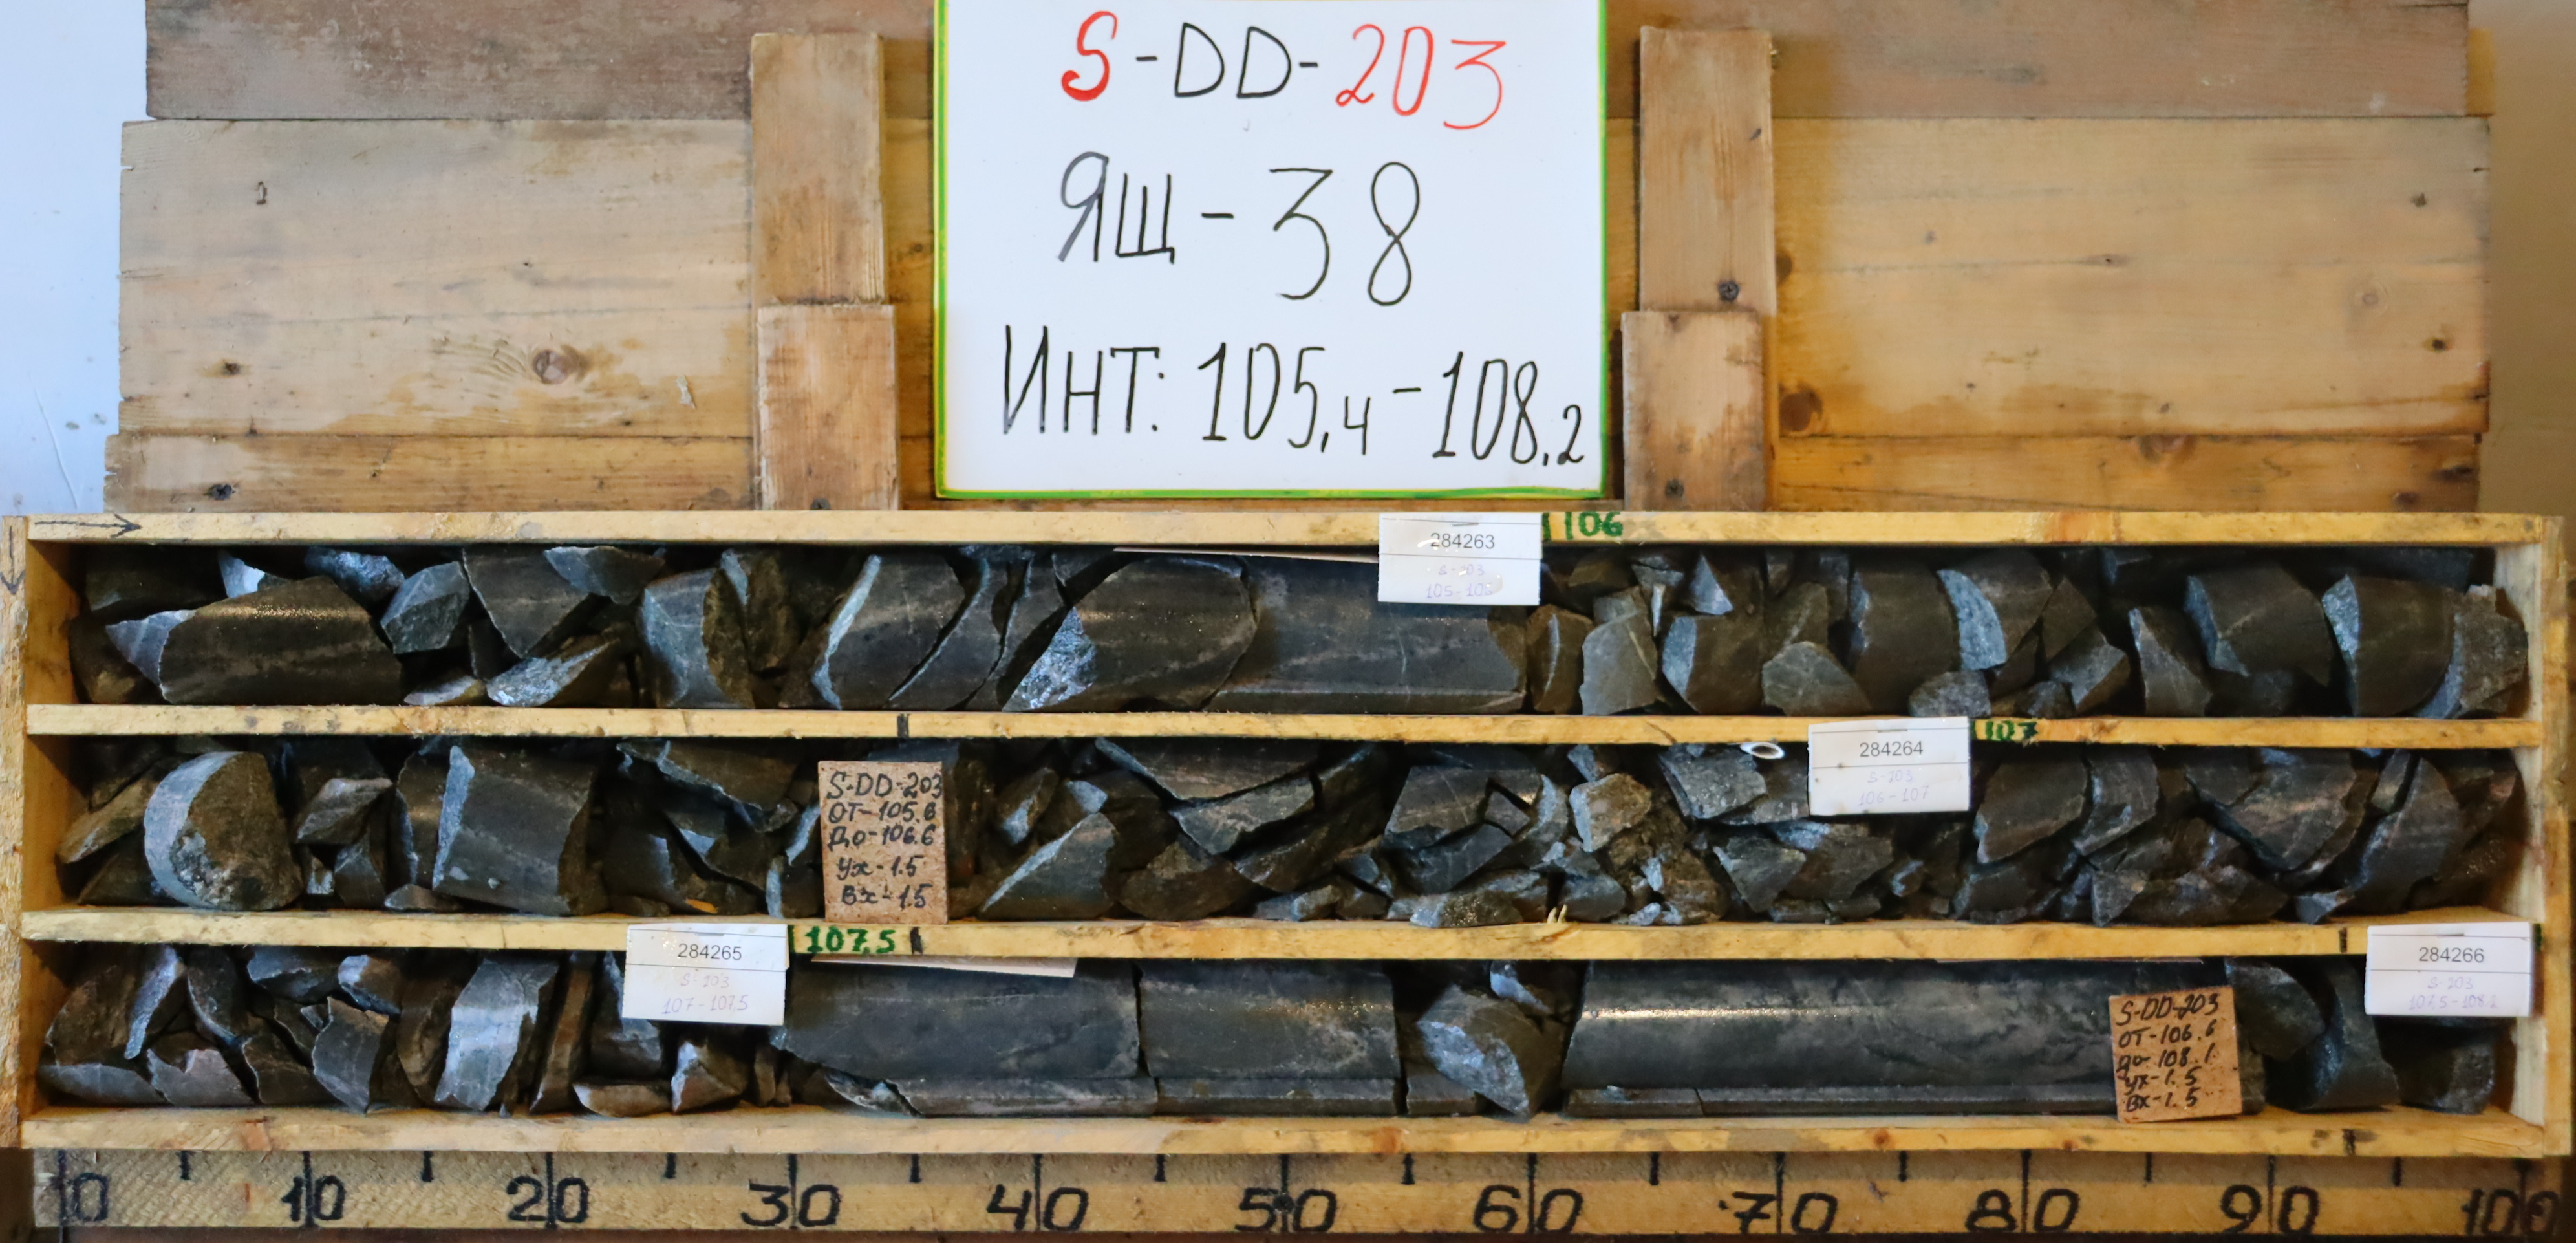 S-DD-203
ЯЩ-38
ИНТ: 105,4-108,2
106
284263
S-203
284264
S-203
106-107
107
S-DD-203
ОТ-105.6
До-106.6
Ух-1.5
Вх-1.5
284265
S-203
107-107,5
107.5
284266
S-203
107.5-108.2
S-DD-203
ОТ-106.6
До-108.1
Ух-1.5
Вх-1.5
0 10 20 30 40 50 60 70 80 90 100